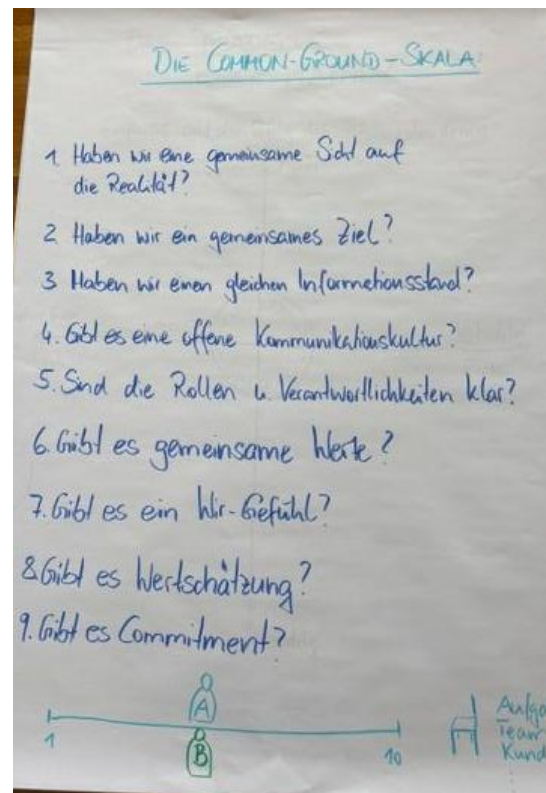 DIE COMMON-GROUND-SKALA
1 Haben wir eine gemeinsame Sicht auf
die Realität?
2 Haben wir ein gemeinsames Ziel?
3 Haben wir einen gleichen Informationsstand?
4. Gibt es eine offene Kommunikationskultur?
5. Sind die Rollen u. Verantwortlichkeiten klar?
6. Gibt es gemeinsame Werte?
7. Gibt es ein Wir-Gefühl?
8. Gibt es Wertschätzung?
9. Gibt es Commitment?
A
B
1
10
Aufga
Team
Kund